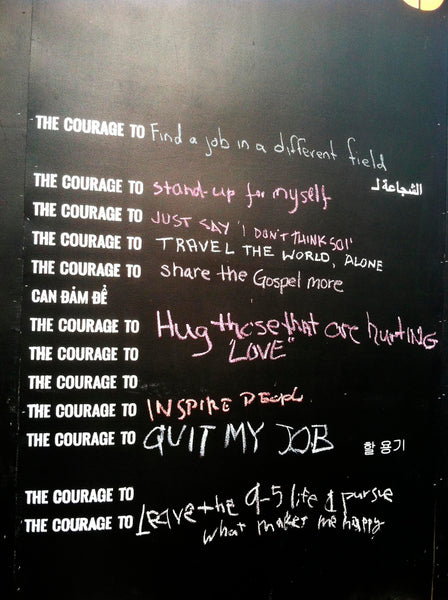 THE COURAGE TO Find a job in a different field
الشجاعة لـ
THE COURAGE TO stand-up for myself
THE COURAGE TO JUST SAY 'I DON'T THINK SO!'
THE COURAGE TO TRAVEL THE WORLD, ALONE
THE COURAGE TO share the Gospel more
CAN ĐẢM ĐỂ
THE COURAGE TO Hug those that are hurting
THE COURAGE TO "LOVE"
THE COURAGE TO
THE COURAGE TO INSPIRE
THE COURAGE TO QUIT MY JOB
할 용기
THE COURAGE TO
THE COURAGE TO Leave the 9-5 life & pursue
what makes me happy